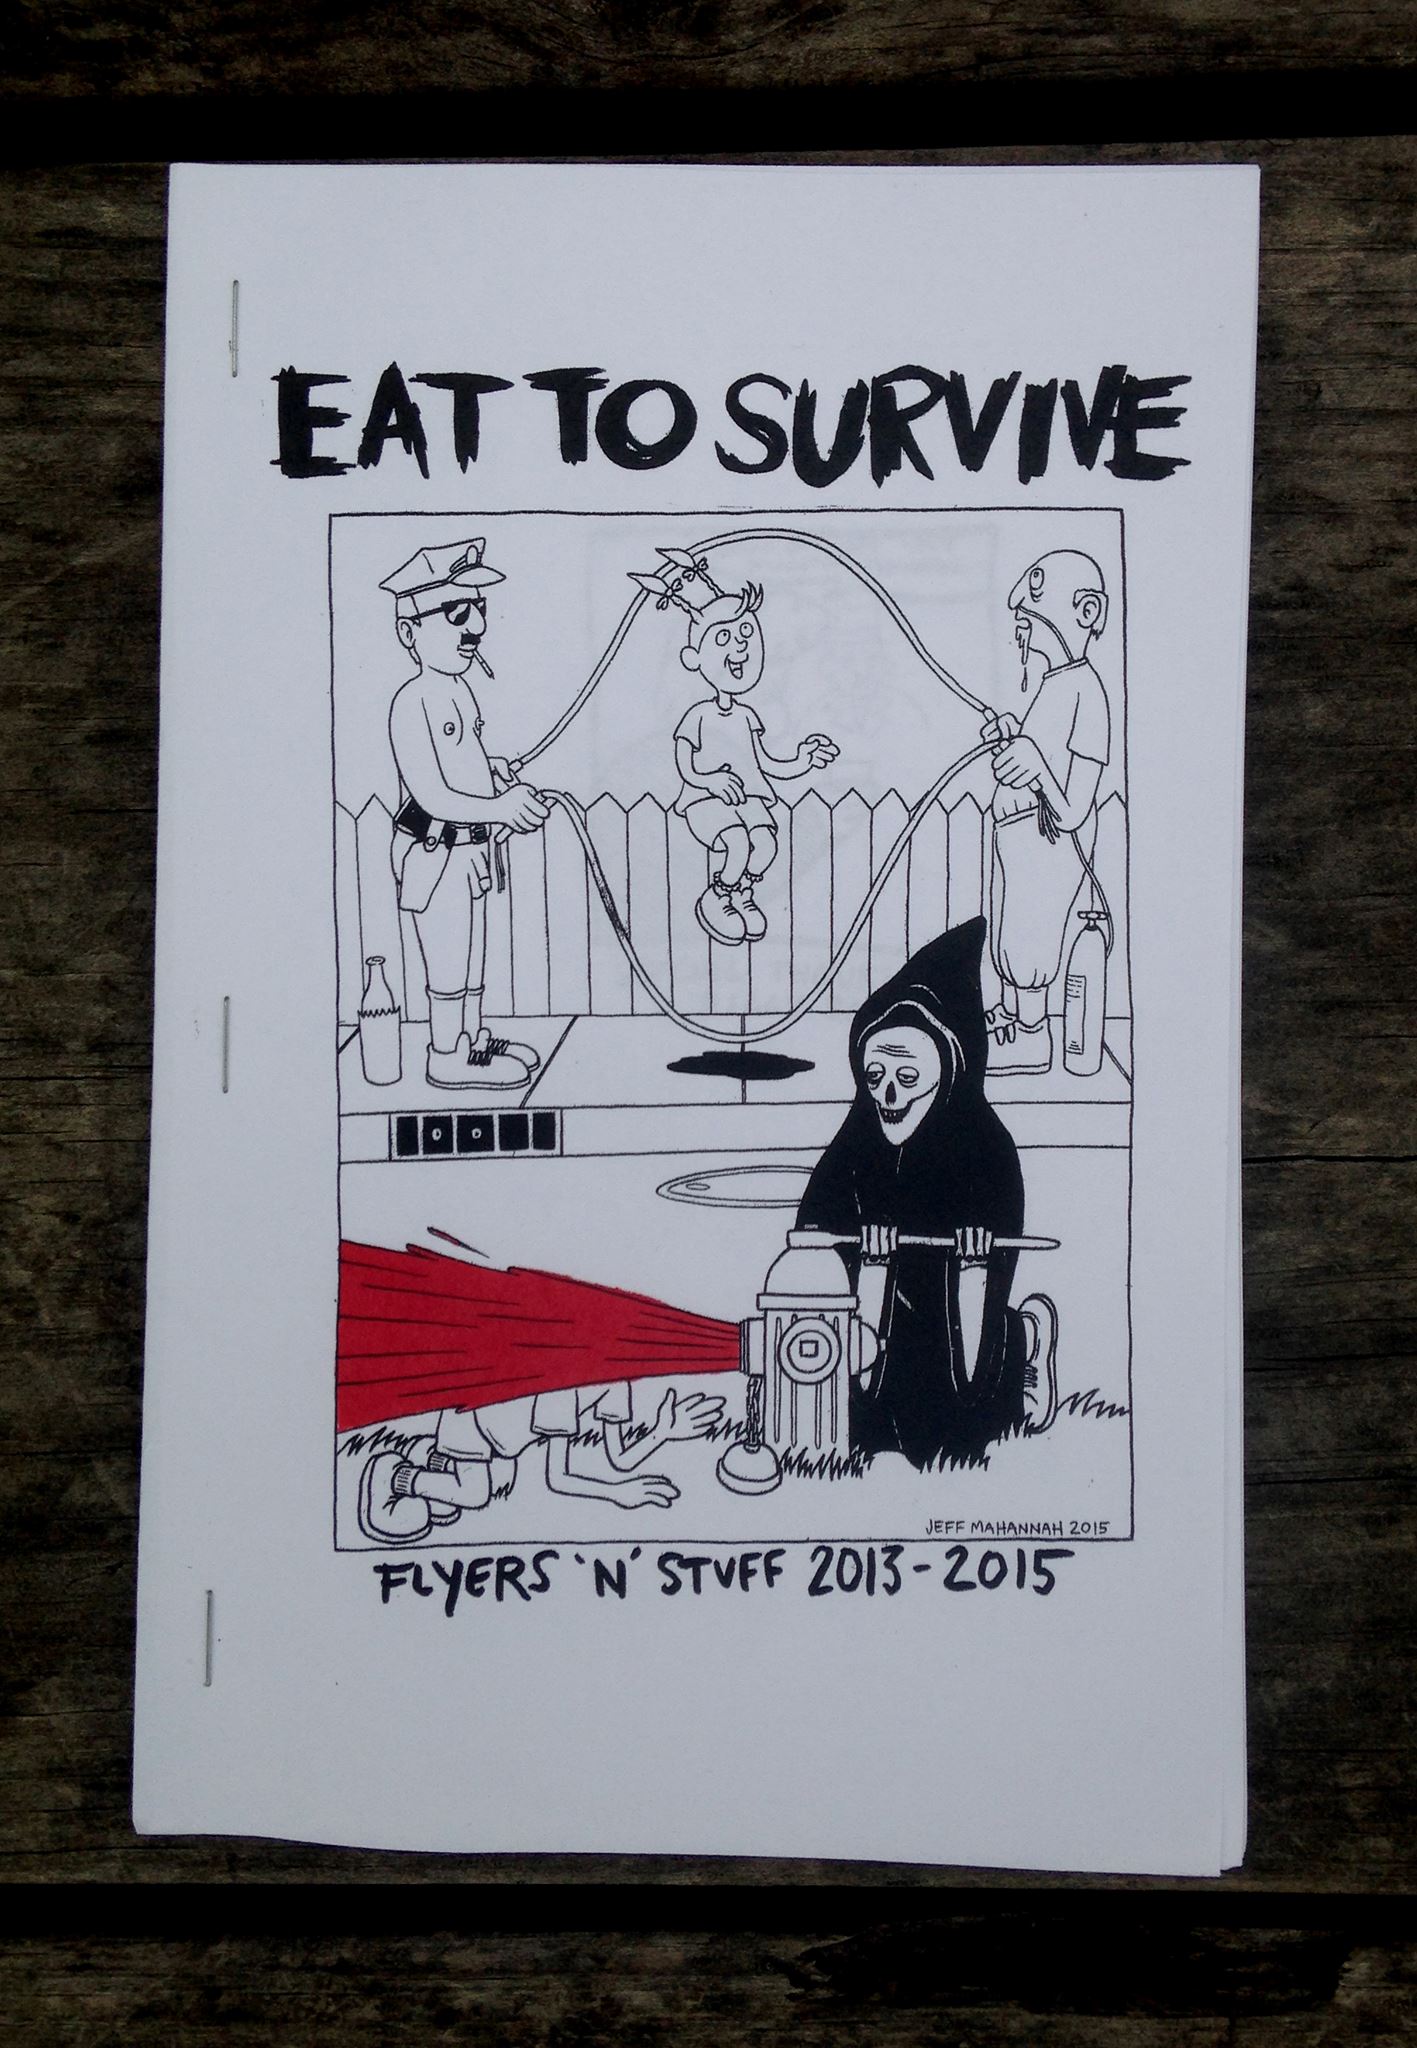 EAT TO SURVIVE
JEFF MAHANNAH 2015
FLYERS 'N' STUFF 2013-2015